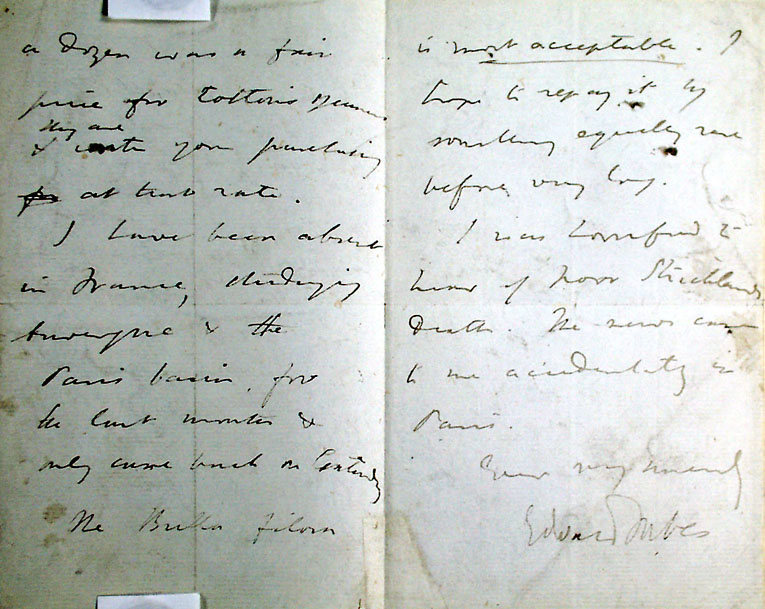 a dozen was a fair
price for
they are
& worth your purchasing
at that rate.
I have been absent
in France, studying
Auvergne & the
Paris basin, for
the last month &
only came back on Saturday
The Bulla
is most acceptable. I
hope to repay it by
something equally rare
before very long.
I was horrified to
hear of poor Strickland's
death. The news came
to me accidentally in
Paris.
Ever very sincerely
Edward Forbes